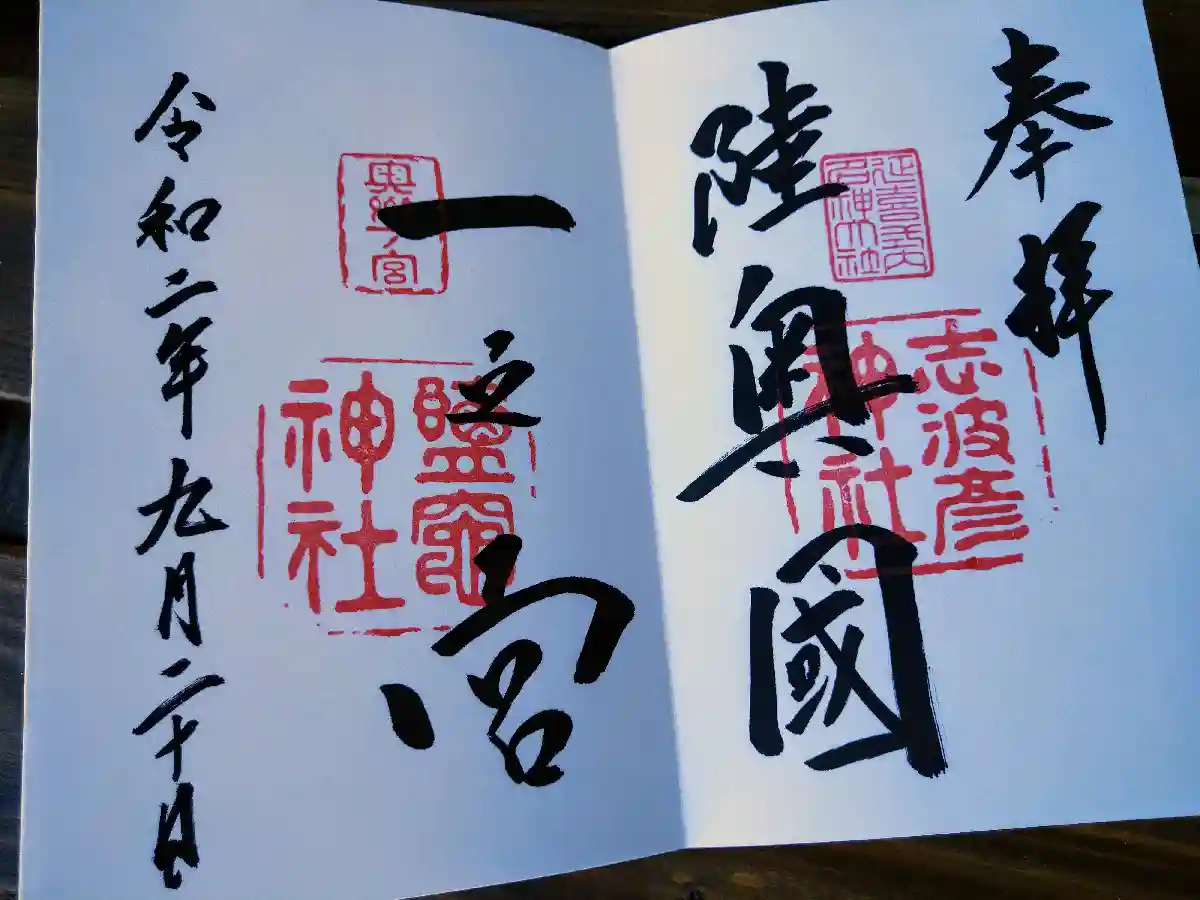 奉拝
陸奥國
延喜式内
名神大社
志波彦
神社
一之宮
奥州一宮
鹽竈
神社
令和二年九月二十日